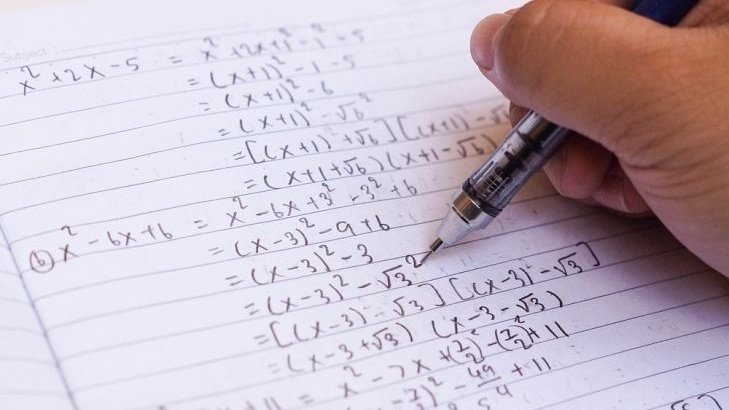 Subject :
x² + 2x - 5 = x² + 2x + 1² - 1² - 5
= (x+1)² - 1 - 5
= (x+1)² - 6
= (x+1)² - √6²
= [(x+1) + √6] [(x+1) - √6
= (x+1+√6)(x+1-√6)
(b) x² - 6x + 6 = x² - 6x + 3² - 3² + 6
= (x-3)² - 9 + 6
= (x-3)² - 3
= (x-3)² - √3²
= [(x-3) - √3] [(x-3) - √3]
= (x-3+√3) (x-3-√3)
= x² - 7x + (7/2)² - (7/2)² + 11
)² - 49/4 + 11